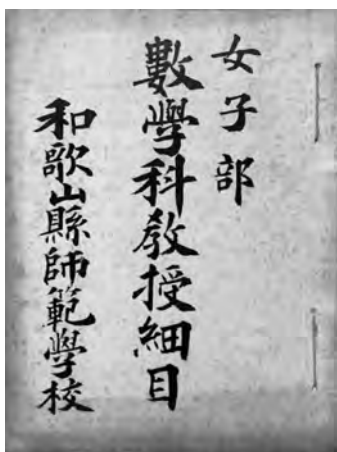 女子部
數學科敎授細目
和歌山縣師範學校